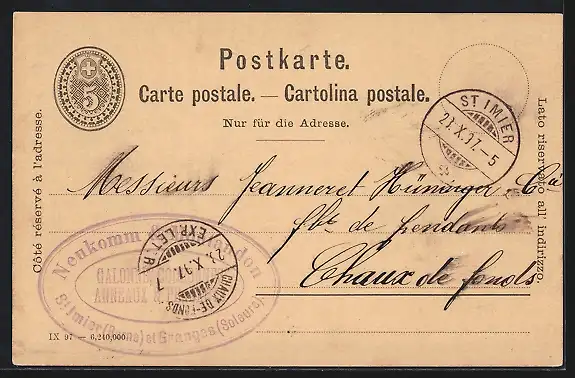 Postkarte.
Carte postale. — Cartolina postale.
Nur für die Adresse.
5
ST IMIER
23.X.97.–5
Côté réservé à l'adresse.
Lato riservato all' indirizzo.
Messieurs Jeanneret Hüninger & Cie
fbts de pendants
Chaux de fonds
Neukomm
St Imier (Berne) et Granges (Soleure)
EXP. LET. R.
23.X.97. 7
CHAUX-DE-FONDS
IX 97 — 6,240,000